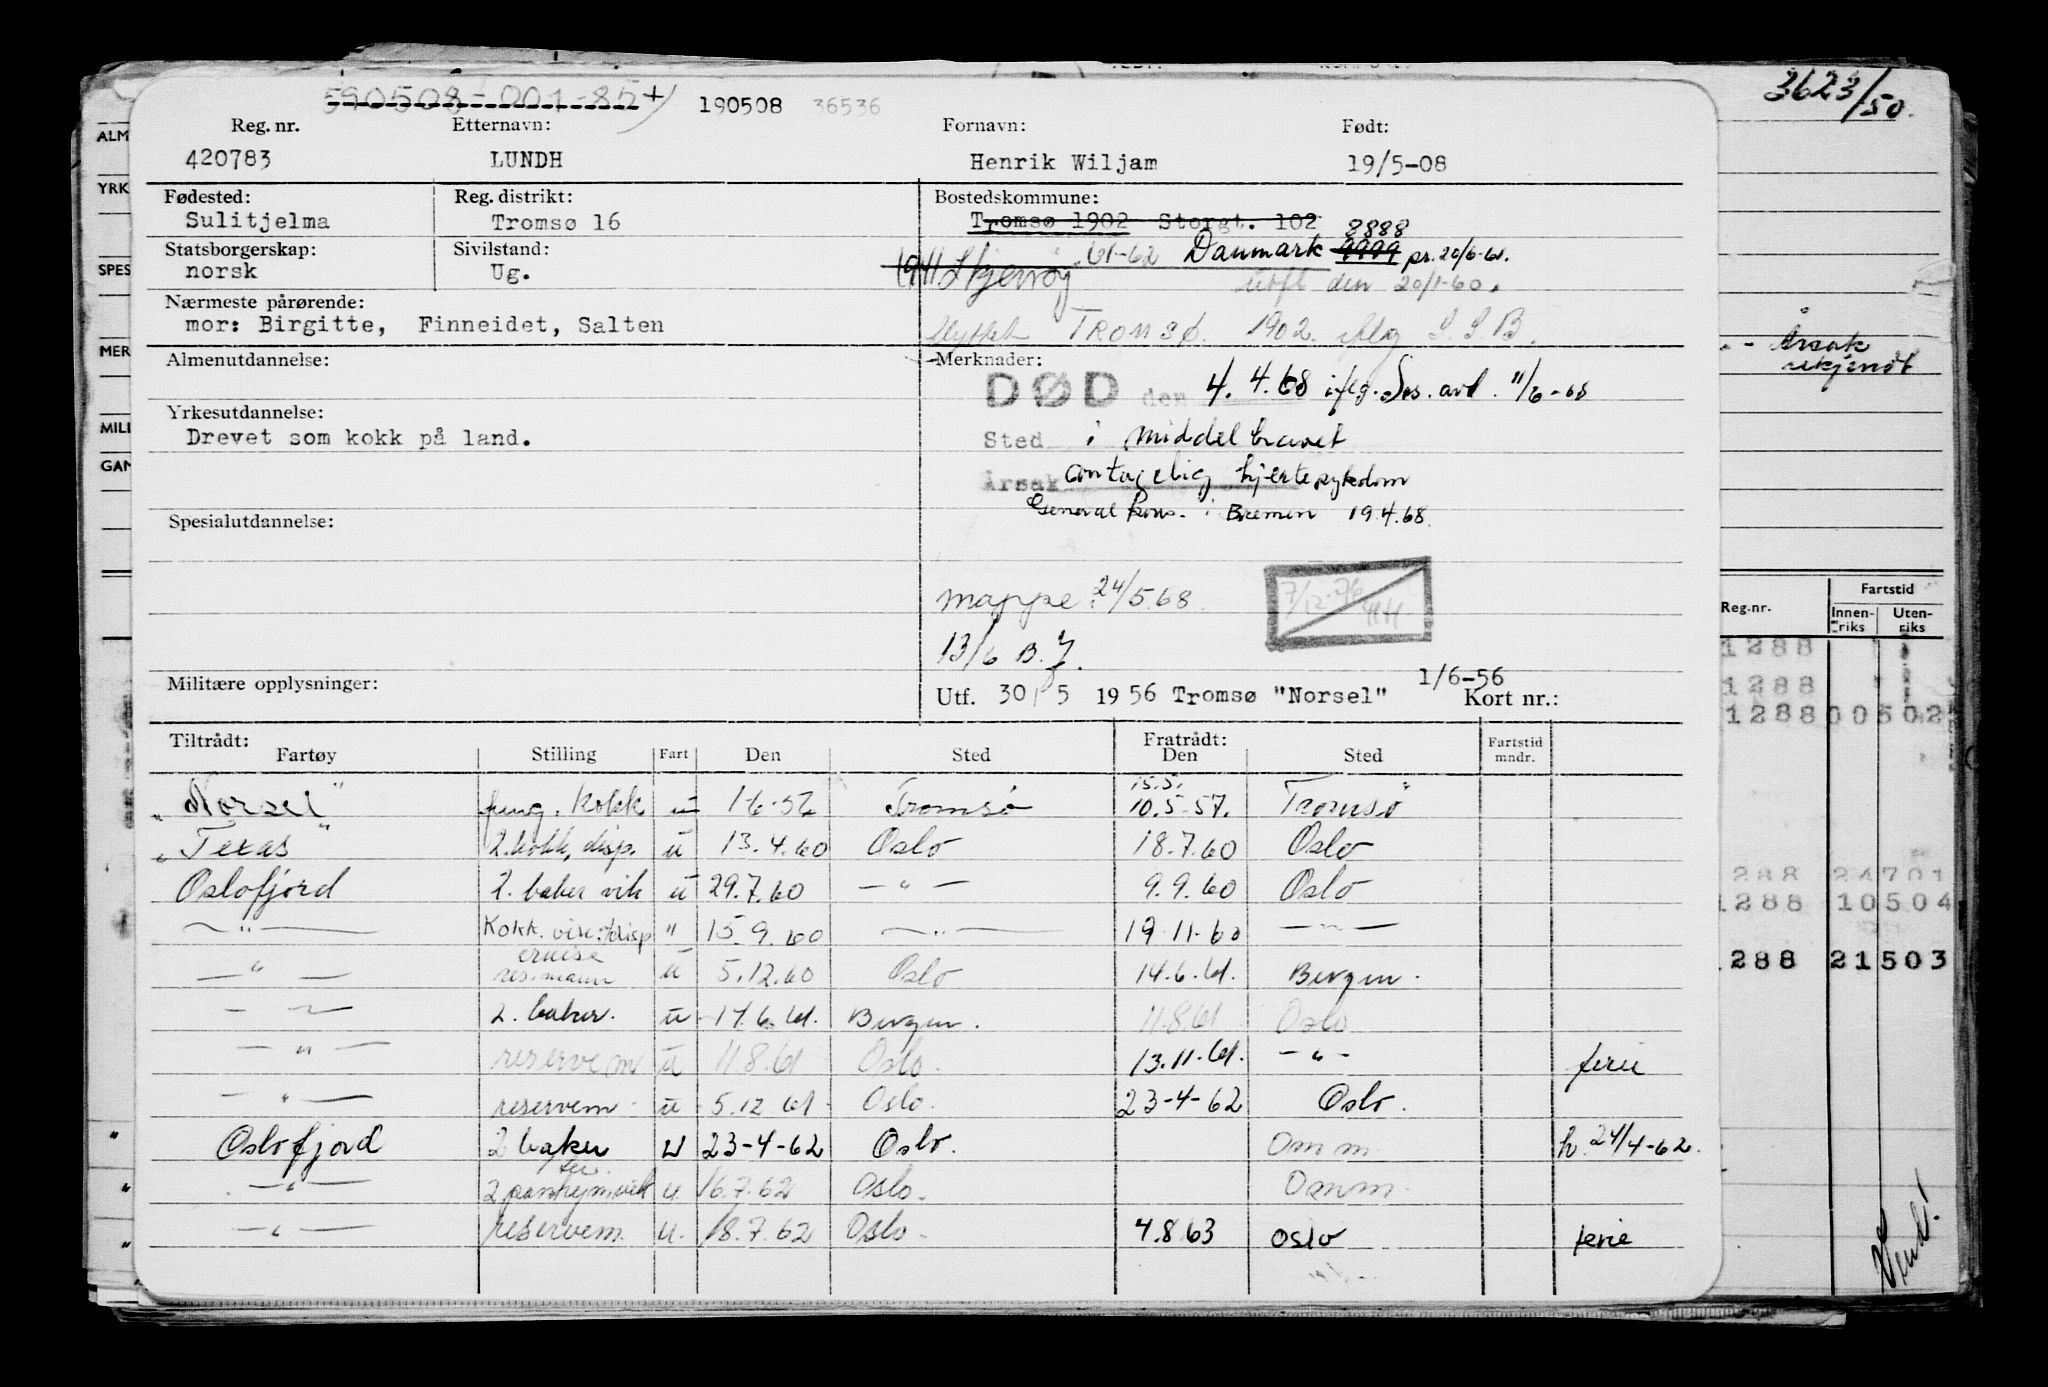 590508-001-85+/ 190508 36536
Reg. nr. Etternavn: Fornavn: Født:
420783 LUNDH Henrik Wiljam 19/5-08
Fødested: Reg. distrikt: Bostedskommune:
Sulitjelma Tromsø 16 Tromsø 1902 Storgt. 102
8888
Statsborgerskap: Sivilstand:
norsk Ug.
1941 Skjervøy 61-62 Danmark 9999 pr. 20/6-61.
den 20/1-60.
Nærmeste pårørende:
mor: Birgitte, Finneidet, Salten
Flyttet TROMSØ 1902 iflg S.S.B.
Almenutdannelse: Merknader:
DØD den 4.4.68 iflg. Ses. avd. 11/6-68
Yrkesutdannelse:
Drevet som kokk på land.
Sted i Middelhavet
Årsak antagelig hjertesykdom
General Kons. i Bremen 19.4.68.
Spesialutdannelse:
mappe 24/5.68.
7/12-76 HH
13/6 B.J.
Militære opplysninger:
1/6-56
Utf. 30/5 1956 Tromsø "Norsel" Kort nr.:
Tiltrådt: Fratrådt:
Fartøy Stilling Fart Den Sted Den Sted Fartstid mndr.
15.5.
"Norsel" fung. kokk u 1-6-56 Tromsø 10.5-57. Tromsø
"Texas" 2. kokk, disp. u 13.4.60 Oslo 18.7.60 Oslo
Oslofjord 2. baker vik u 29.7.60 — " — 9.9.60 Oslo
— " — Kokk. disp " 15.9.60 — " — 19-11-60 — " —
cruise
— " — res.mann u 5.12.60 Oslo 14.6.61. Bergen.
— " — 2. baker. u 14.6.61. Bergen. 11.8.61 Oslo
— " — reservem u 11.8.61 Oslo. 13.11.61. — " — ferie
— " — reservem u 5.12.61 Oslo. 23-4-62 Oslo.
Oslofjord 2 baker u 23-4-62 Oslo. Omm. h. 24/4-62.
— " — 2 u. 16.7.62 Oslo. Omm.
— " — reservem. u. 18.7.62 Oslo. 4.8.63 Oslo ferie
3623/50.
ALM
YRK
SPES
MER
MILI
GAN
Årsak
Reg.nr. Fartstid
Innenriks Utenriks
1288
1288
1288 00502
288 24701
1288 10504
288 21503
Vend!